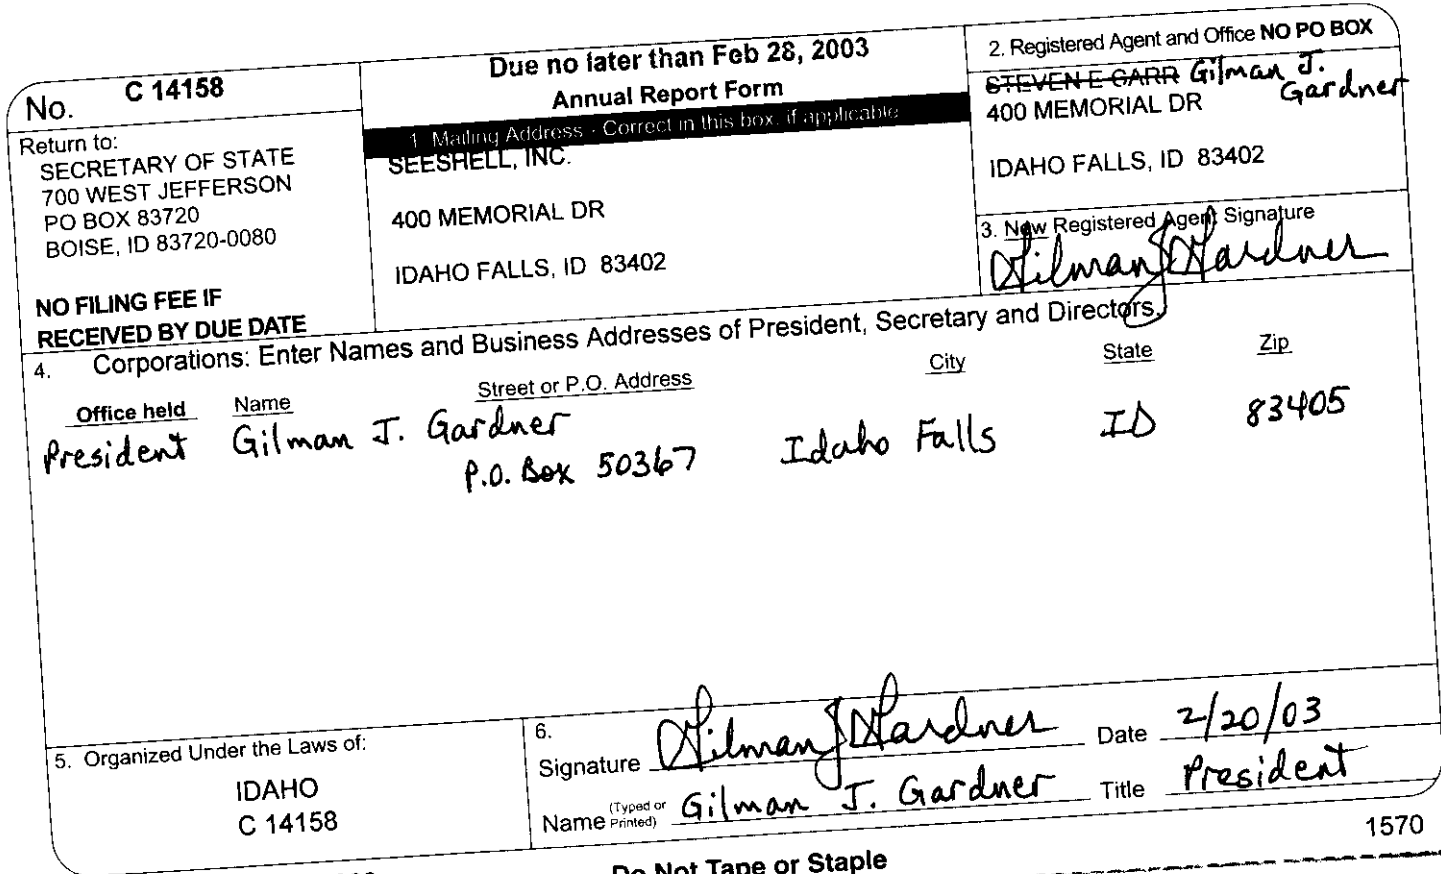 No. C 14158
Return to:
SECRETARY OF STATE
700 WEST JEFFERSON
PO BOX 83720
BOISE, ID 83720-0080
NO FILING FEE IF
RECEIVED BY DUE DATE
Due no later than Feb 28, 2003
Annual Report Form
1. Mailing Address - Correct in this box, if applicable
SEESHELL, INC.
400 MEMORIAL DR
IDAHO FALLS, ID 83402
2. Registered Agent and Office NO PO BOX
STEVEN E CARR Gilman J.
Gardner
400 MEMORIAL DR
IDAHO FALLS, ID 83402
3. New Registered Agent Signature
Gilman J Gardner
4. Corporations: Enter Names and Business Addresses of President, Secretary and Directors.
Office held Name Street or P.O. Address City State Zip
President Gilman J. Gardner
P.O. Box 50367 Idaho Falls ID 83405
5. Organized Under the Laws of:
IDAHO
C 14158
6.
Signature Gilman J Gardner Date 2/20/03
Name (Typed or Printed) Gilman J. Gardner Title President
1570
Do Not Tape or Staple